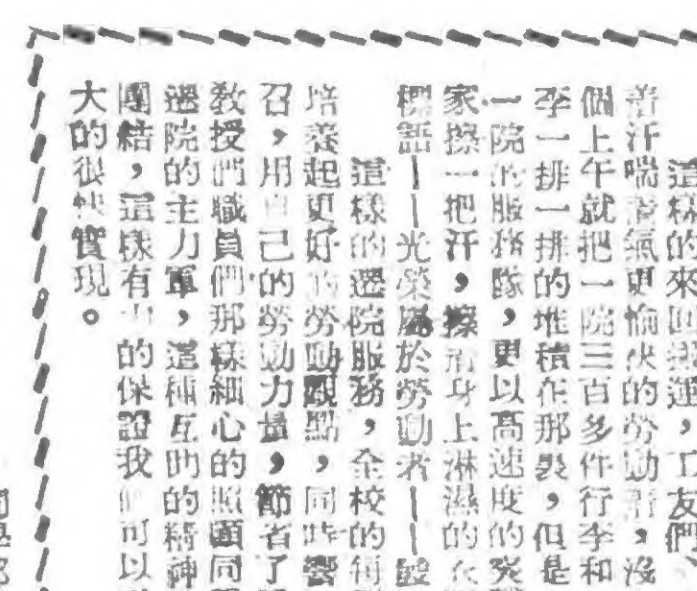 這樣的來回搬運，工友們、
着汗喘着氣更愉快的勞動着，沒
個上午就把一院三百多件行李和
李一排一排的堆積在那裏，但是
一院的服務隊，更以高速度的突
家擦一把汗，擦着身上淋濕的衣
標語——光榮屬於勞動者——
這樣的遷院服務，全校的每
培養起更好的勞動觀點，同時響
召，用自己的勞動力量，節省了
教授們職員們那樣細心的照顧同
遷院的主力軍，這種互助的精神
團結，這樣有力的保證我們可以
大的很快實現。